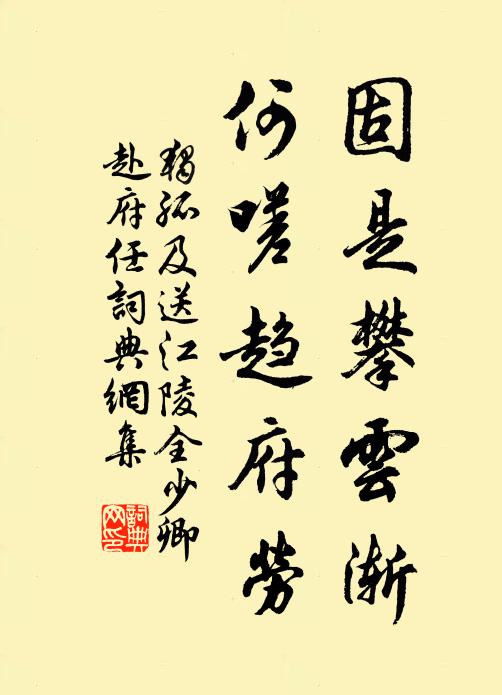 固是攀雲漸
何嗟趨府勞
獨孤及送江陵全少卿
赴府任詞典網集
詞典
网印